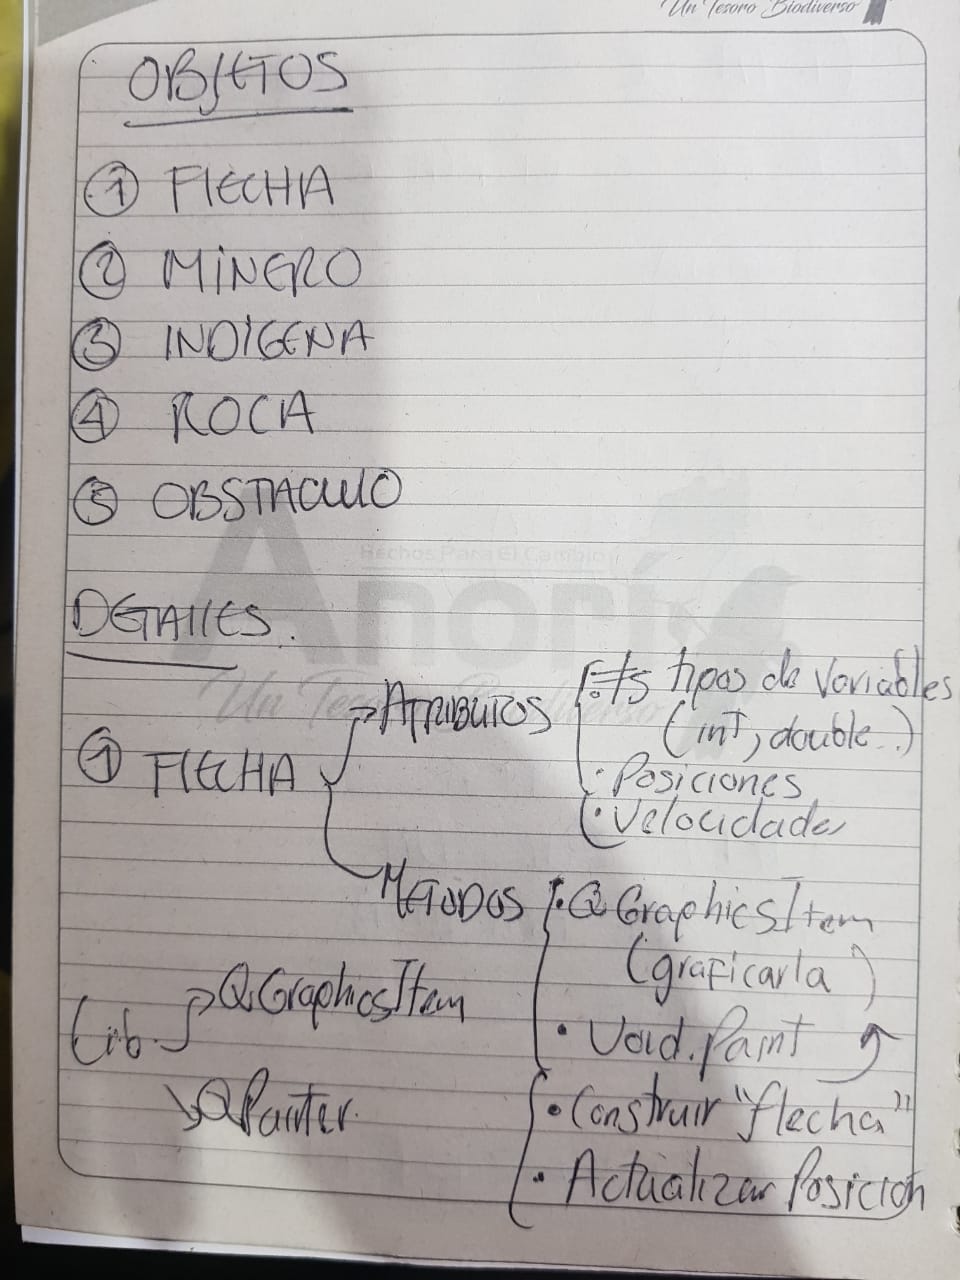 Un Tesoro Biodiverso
OBJETOS
① FLECHA
② MINERO
③ INDÍGENA
④ ROCA
⑤ OBSTACULO
Hechos Para El Cambio
Anorí
Un Tesoro Biodiverso
DETALLES.
① FLECHA
ATRIBUTOS
· ≠s tipos de variables
(int, double..)
· Posiciones
· Velocidades
METODOS
· QGraphicsItem
(graficarla)
· Void.Paint
· Construir "flecha"
· Actualizar Posición
Lib.
QGraphicsItem
QPainter.